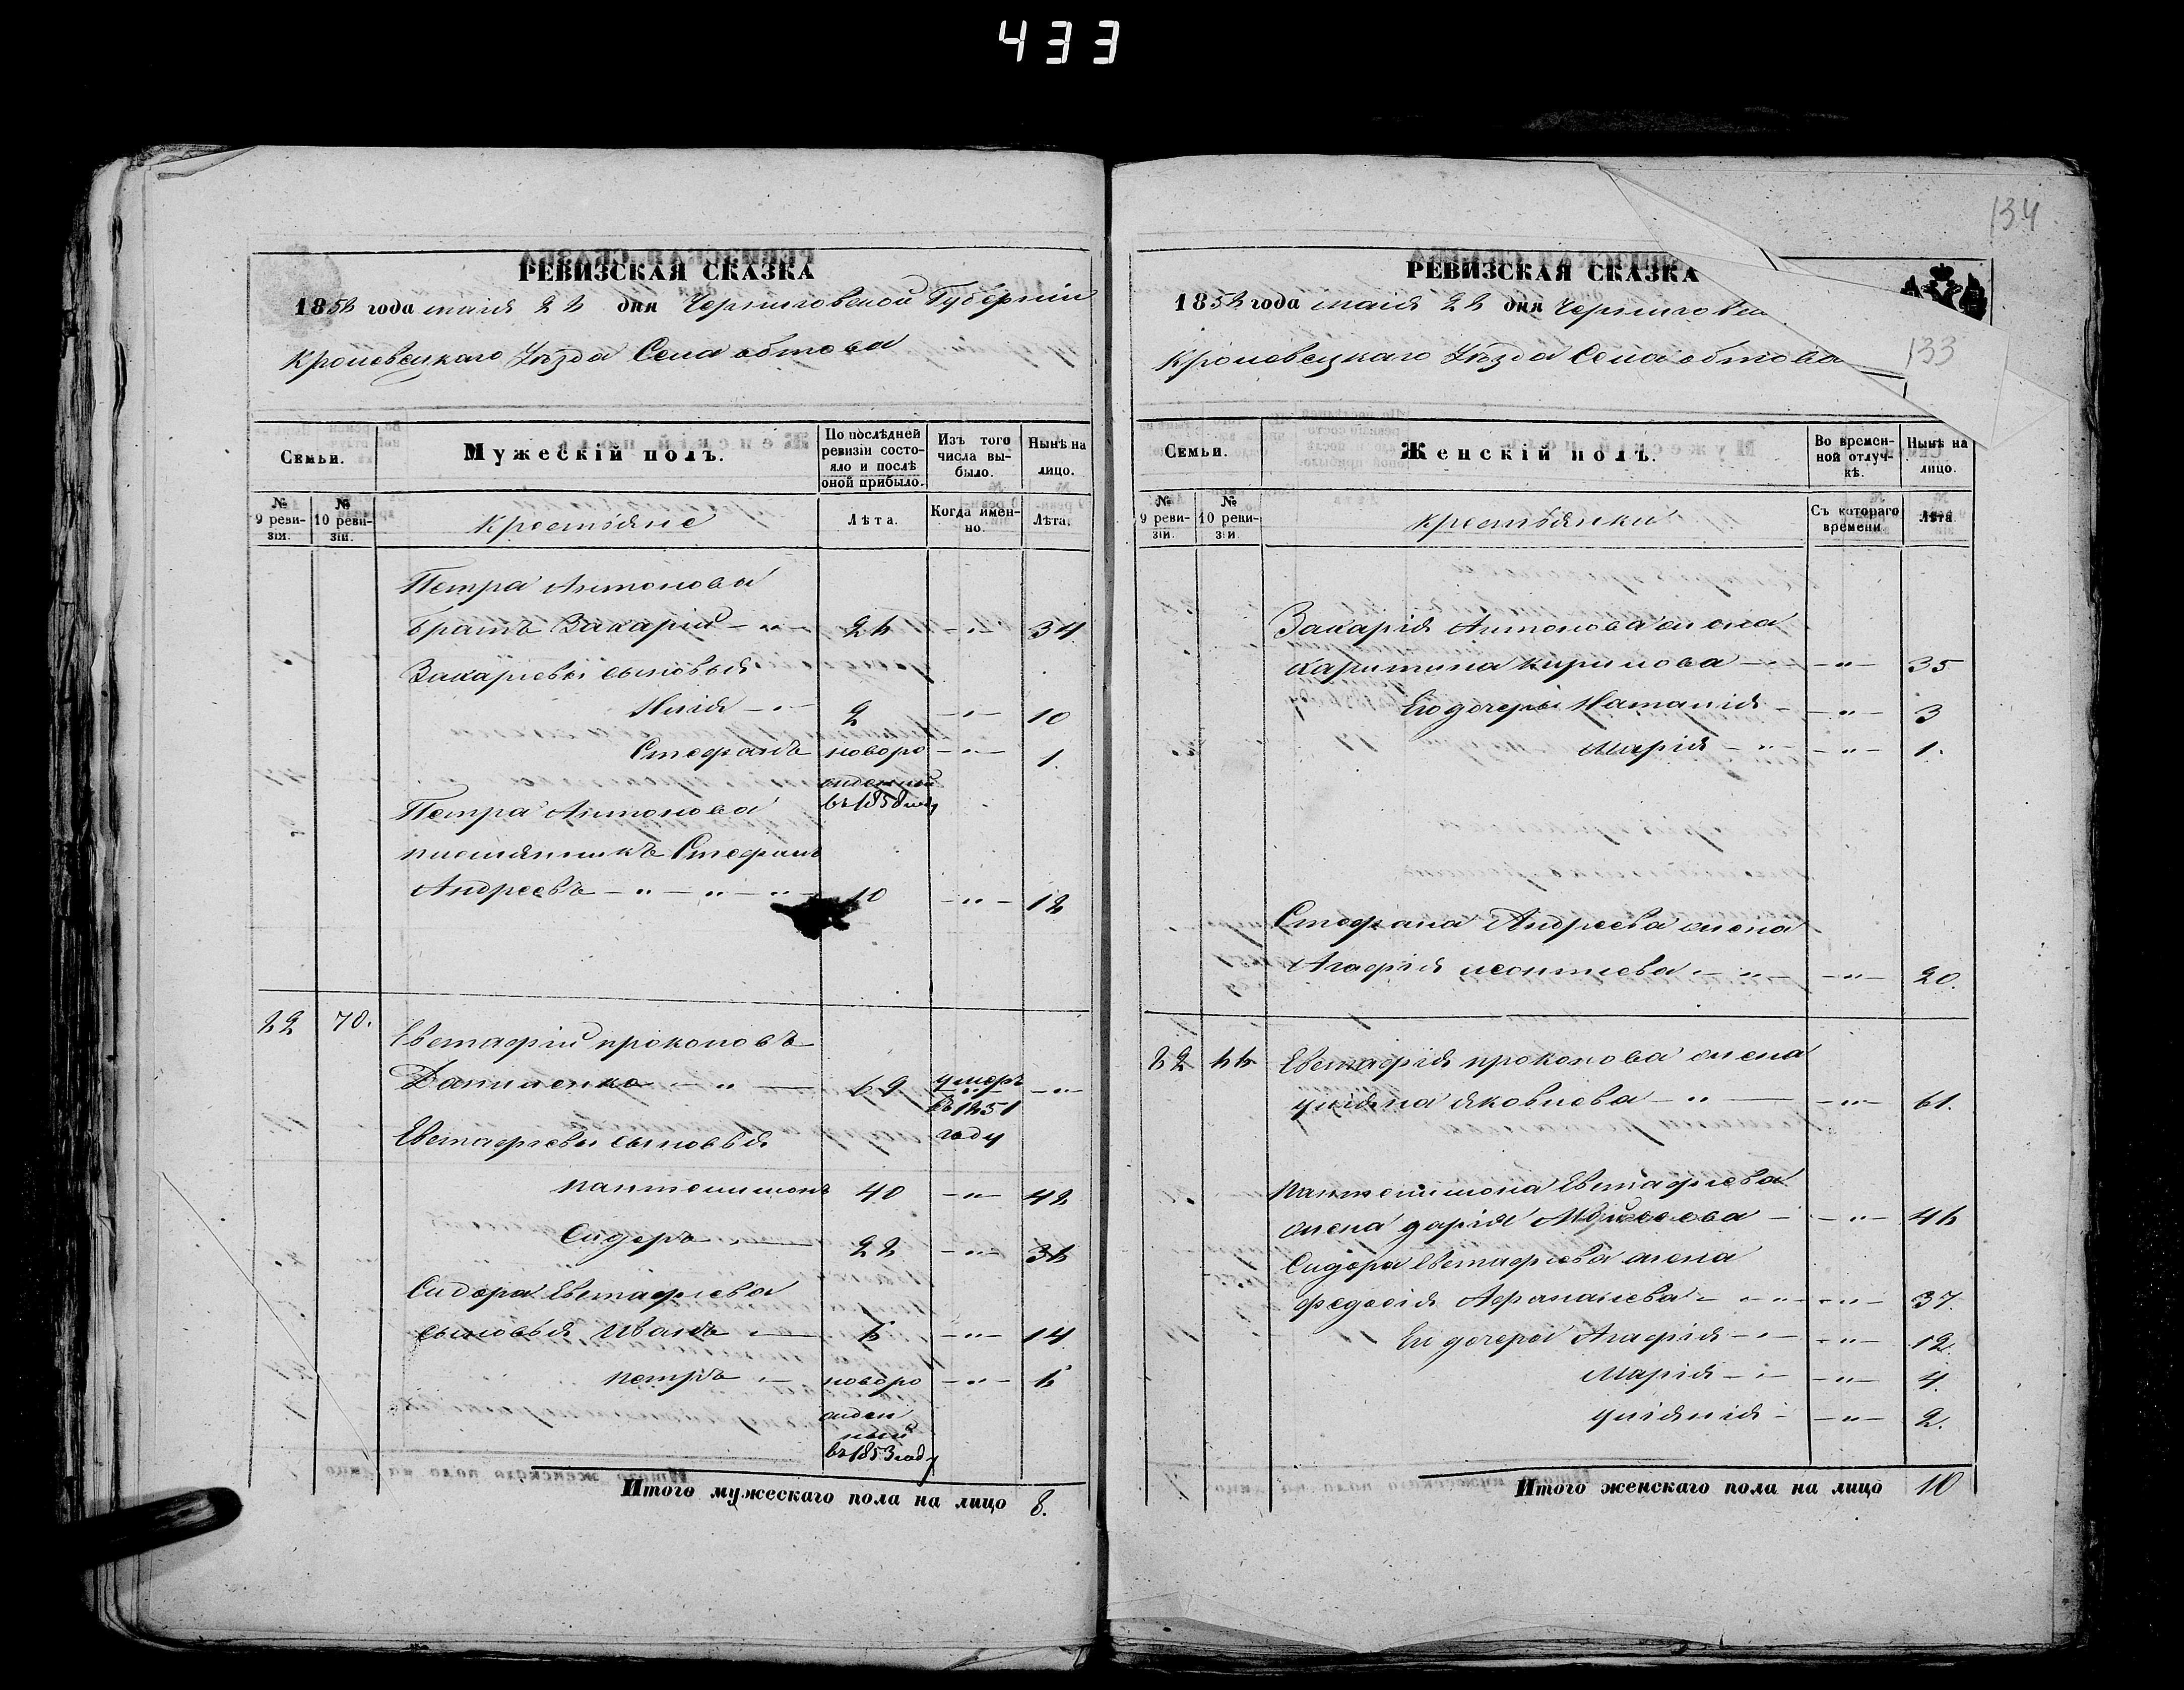 433
РЕВИЗСКАЯ СКАЗКА
1858 года маія 22 дня Черниговской Губерніи
Кролевецкаго Уѣзда Села обтова
Семьи.
Мужескій полъ.
По послѣдней ревизіи состояло и послѣ оной прибыло.
Изъ того числа выбыло.
Нынѣ на лицо.
№ 9 ревизіи.
№ 10 ревизіи.
Крестьяне
Лѣта.
Когда именно.
Лѣта.
Петра Антонова
братъ Захарій 26 34
Захаріевы сыновья
Илія 2 10
Стефанъ новоро 1
жденный
въ 1858 году
Петра Антонова
племянникъ Стефанъ
Андреевъ 10 18
22 70. Евстафій прокоповъ
Даниленко 69 умеръ
въ 1851
году
Евстафіевы сыновья
пантелимонъ 40 48
Сидоръ 28 36
Сидора Евстафіева
сыновья Иванъ 6 14
петръ новоро 6
жден
ный
въ 1853 году
Итого мужескаго пола на лицо 8.
134
РЕВИЗСКАЯ СКАЗКА
1858 года маія 22 дня Чернигов
Кролевецкаго Уѣзда Села обтова
133
Семьи.
Женскій полъ.
Во временной отлучкѣ.
Нынѣ на лицо.
№ 9 ревизіи.
№ 10 ревизіи
крестьянки
Съ котораго времени.
Лѣта
Захарія Антонова жена
харитина кирилова 35
Его дочери Наталія 3
Марія 1.
Стефана Андреева жена
Агафія леонтиева 20.
22 Евстафія прокопова жена
уліяна яковлева 61.
пантелимона Евстафіева
жена дарія Мойсеева 46
Сидора Евстафіева жена
федосія Афанасиева 37.
Его дочери Агафія 12.
Марія 4.
уліянія 2.
Итого женскаго пола на лицо 10